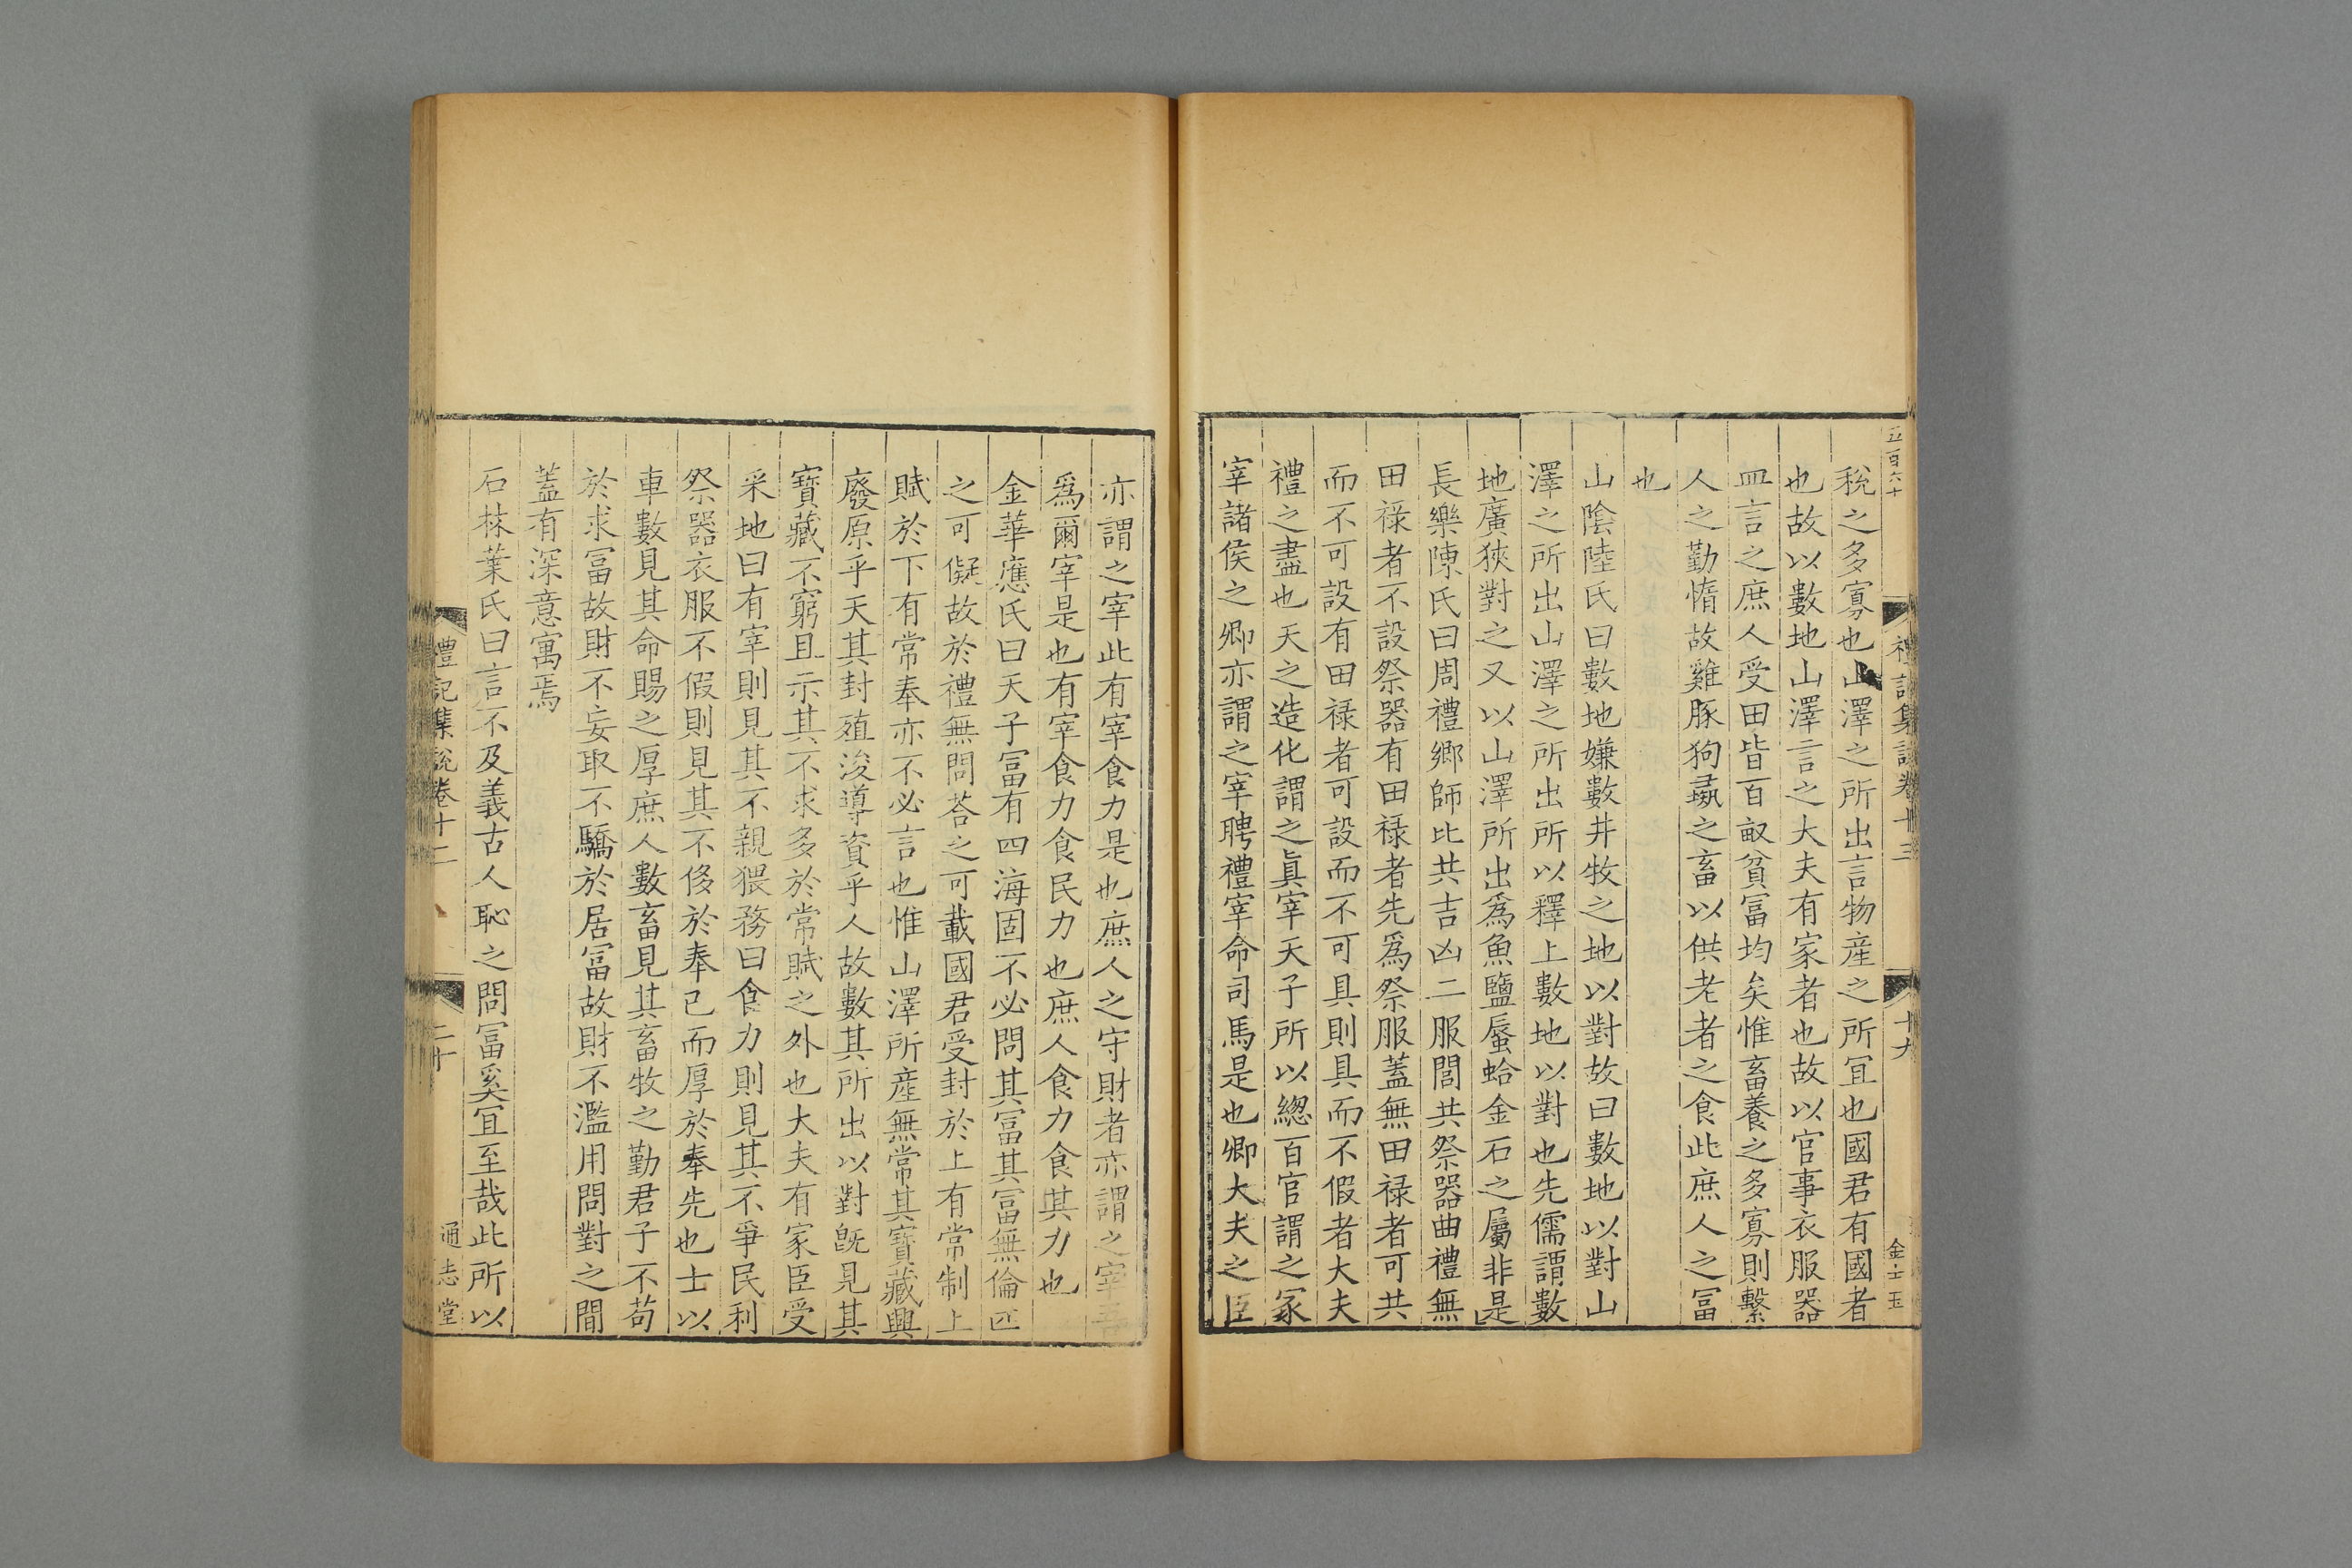 五百六十
禮記集說卷十三
十九
金士玉
稅之多寡也山澤之所出言物産之所宜也國君有國者
也故以數地山澤言之大夫有家者也故以官事衣服器
皿言之庶人受田皆百畝貧冨均矣惟畜養之多寡則繫
人之勤惰故雞豚狗彘之畜以供老者之食此庶人之冨
也
山陰陸氏曰數地嫌數井牧之地以對故曰數地以對山
澤之所出山澤之所出所以釋上數地以對也先儒謂數
地廣狹對之又以山澤所出爲魚鹽蜃蛤金石之屬非是
長樂陳氏曰周禮鄉師比共吉凶二服閭共祭器曲禮無
田禄者不設祭器有田禄者先爲祭服蓋無田禄者可共
而不可設有田禄者可設而不可具則具而不假者大夫
禮之盡也天之造化謂之眞宰天子所以總百官謂之冡
宰諸侯之卿亦謂之宰聘禮宰命司馬是也卿大夫之臣
亦謂之宰此有宰食力是也庶人之守財者亦謂之宰吾
爲爾宰是也有宰食力食民力也庶人食力食其力也
金華應氏曰天子冨有四海固不必問其冨其冨無倫匹
之可儗故於禮無問荅之可載國君受封於上有常制上
賦於下有常奉亦不必言也惟山澤所産無常其寶藏興
廢原乎天其封殖浚導資乎人故數其所出以對旣見其
寶藏不窮且示其不求多於常賦之外也大夫有家臣受
采地曰有宰則見其不親猥務曰食力則見其不爭民利
祭器衣服不假則見其不侈於奉己而厚於奉先也士以
車數見其命賜之厚庶人數畜見其畜牧之勤君子不苟
於求冨故財不妄取不驕於居冨故財不濫用問對之間
蓋有深意寓焉
石林葉氏曰言不及義古人恥之問冨奚宜至哉此所以
禮記集說卷十二
二十
通志堂